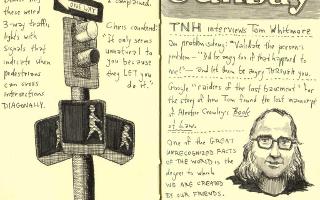 these weird
3-way traffic
lights with
signals that
indicate when
pedestrians
can cross
intersections
DIAGONALLY.
ONE WAY
I complained.
Chris countered:
"It only seems
unnatural to
you because
they LET you
do it."
TNH interviews Tom Whitmore
on problem solving: "Validate the person's
problem — "I'd be angry too if that happened to
me!" — and let them be angry THROUGH you.
Google "raiders of the lost basement" for
the story of how Tom found the lost manuscript
of Aleister Crowley's Book
of Law.
One of the GREAT
UNRECOGNIZED FACTS
OF THE WORLD is the
degree to which
WE ARE CREATED
BY OUR FRIENDS.